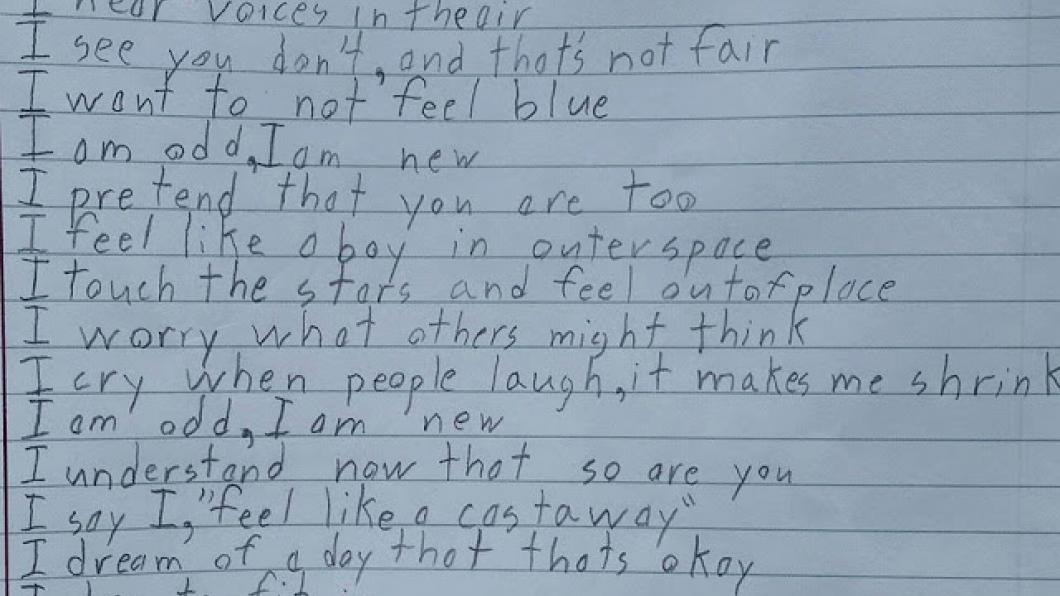 I hear voices in theair
I see you don't, and that's not fair
I want to not feel blue
I am odd, I am new
I pretend that you are too
I feel like a boy in outerspace
I touch the stars and feel outofplace
I worry what others might think
I cry when people laugh, it makes me shrink
I am odd, I am new
I understand now that so are you
I say I, "feel like a castaway"
I dream of a day that thats okay